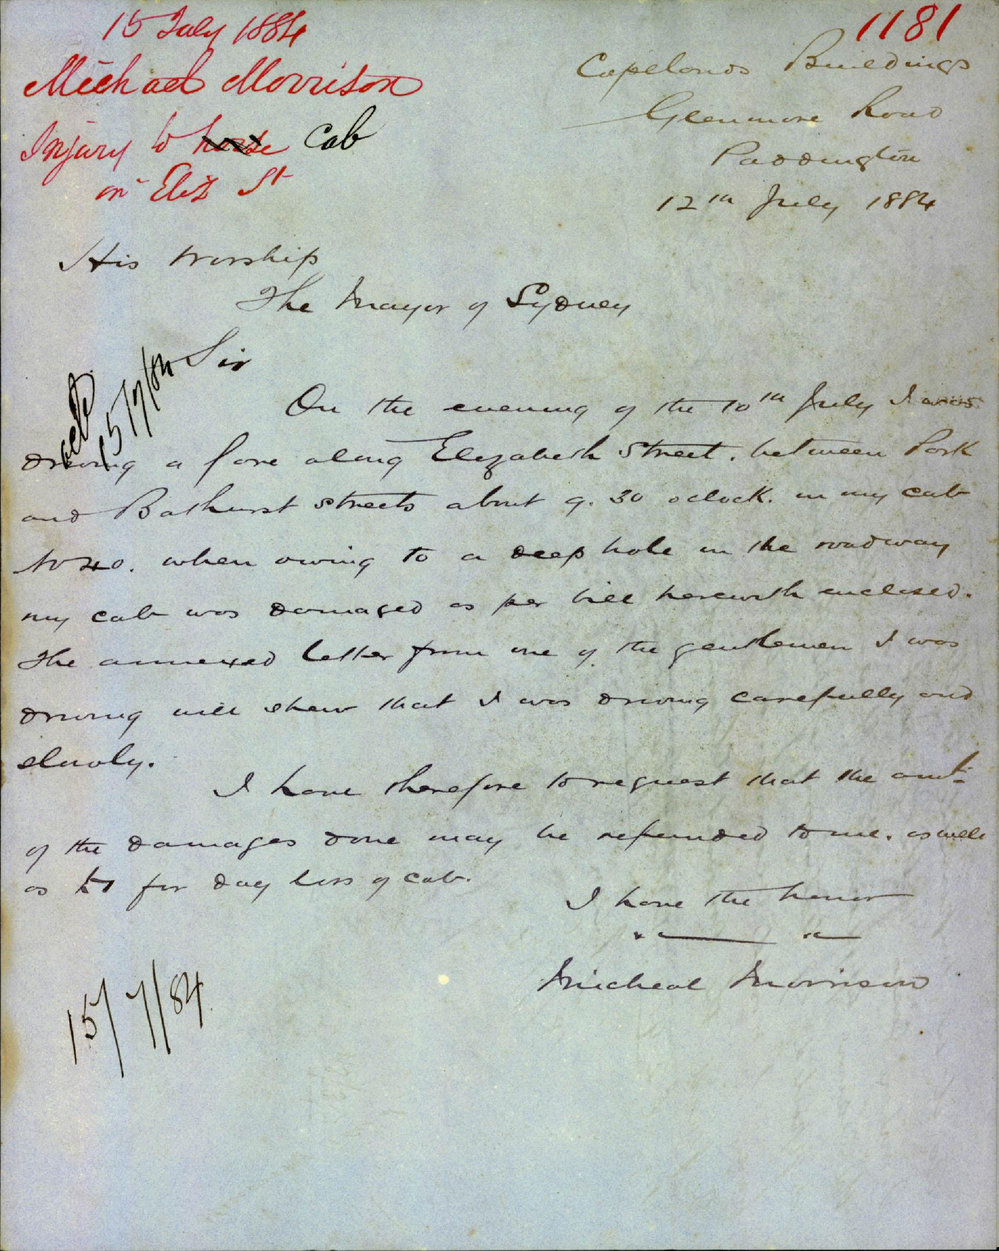 15 July 1884
1181
Michael Morrison
Injury to horse cab
on Eliz St
Copelands Buildings
Glenmore Road
Paddington
12th July 1884
His Worship
The Mayor of Sydney
15/7/84
Sir
On the evening of the 10th July I was
driving a fare along Elizabeth Street. between Park
and Bathurst streets about 9.30 oclock. in my cab
No 40. when owing to a deep hole in the roadway
my cab was damaged as per bill herewith enclosed.
The annexed letter from one of the gentlemen I was
driving will shew that I was driving carefully and
slowly.
I have therefore to request that the amt
of the damages done may be refunded to me. as well
as for day loss of cab.
I have the honor
&c &c
Micheal Morrison
15/7/84